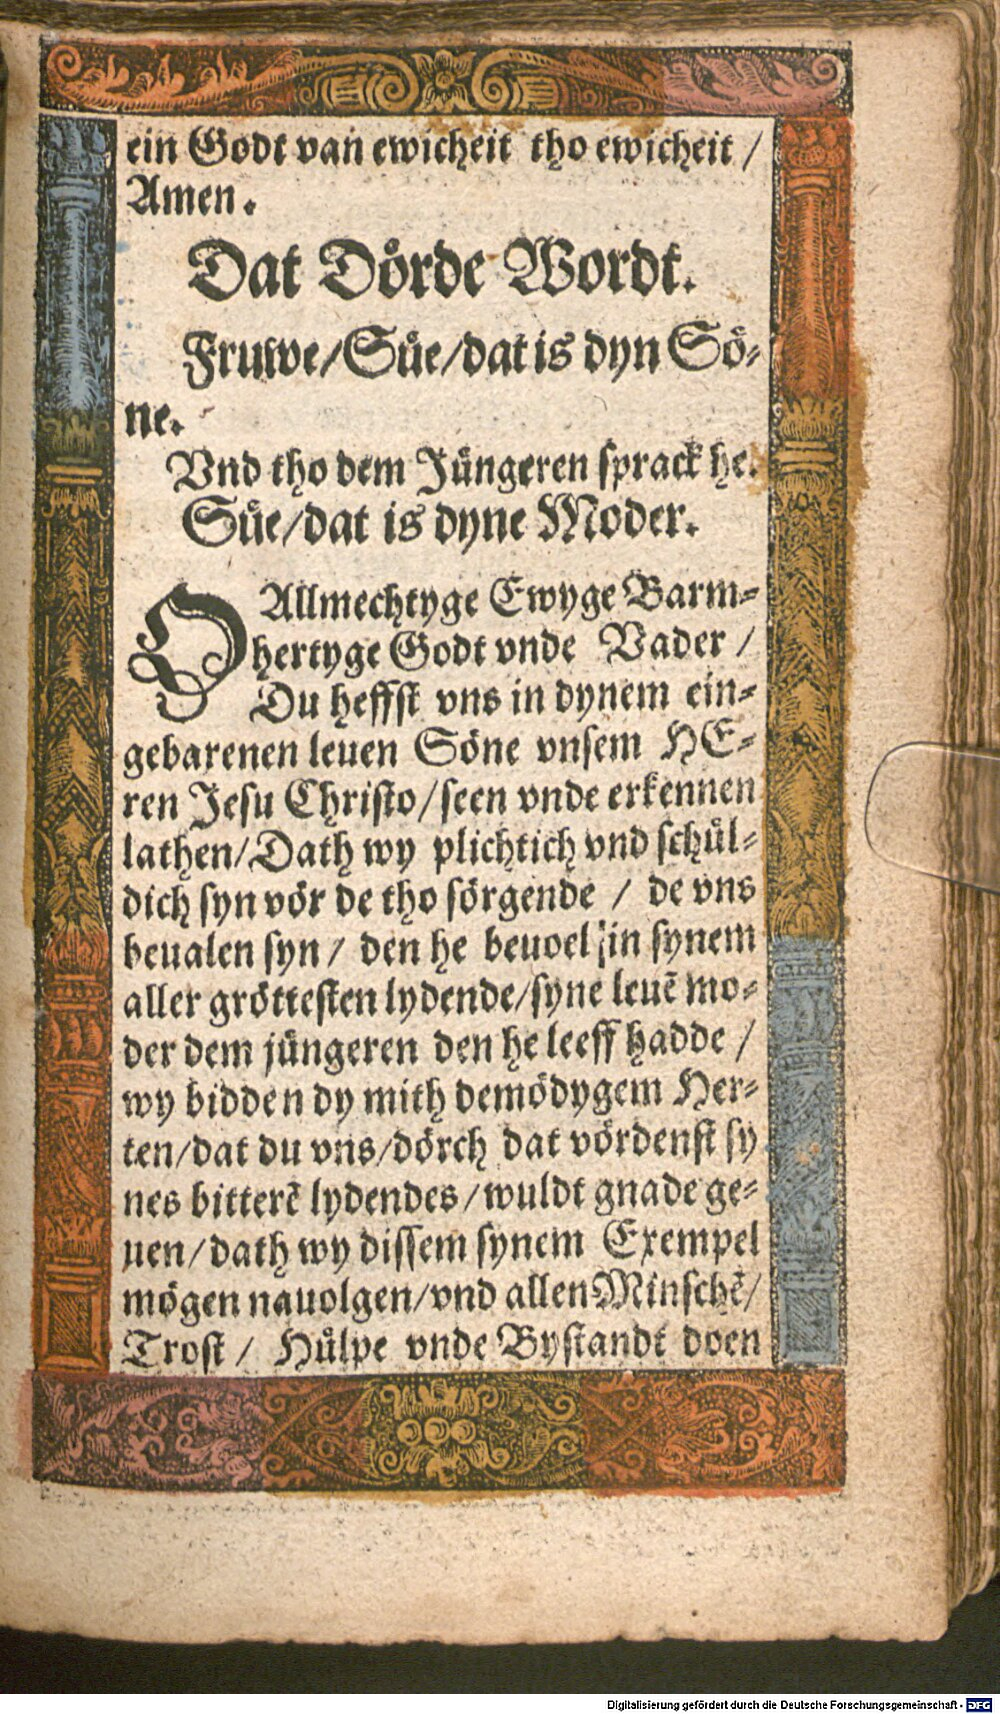 ein Godt van ewicheit tho ewicheit /
Amen.
Dat Dörde Wordt.
Fruwe/Süe/dat is dyn Sö-
ne.
Vnd tho dem Jüngeren sprack he.
Süe/dat is dyne Moder.
O Allmechtyge Ewyge Barm-
hertyge Godt vnde Vader /
Du heffst vns in dynem ein-
gebarenen leuen Söne vnsem HE-
ren Jesu Christo/seen vnde erkennen
lathen/Dath wy plichtich vnd schül-
dich syn vör de tho sörgende / de vns
beualen syn / den he beuoel in synem
aller gröttesten lydende/syne leuē mo-
der dem jüngeren den he leeff hadde /
wy bidden dy mith demödygem Her-
ten/dat du vns/dörch dat vördenst sy
nes bitterē lydendes/wuldt gnade ge-
uen/dath wy dissem synem Exempel
mögen nauolgen/vnd allen Minschē/
Trost / Hülpe vnde Bystandt doen
Digitalisierung gefördert durch die Deutsche Forschungsgemeinschaft - DFG